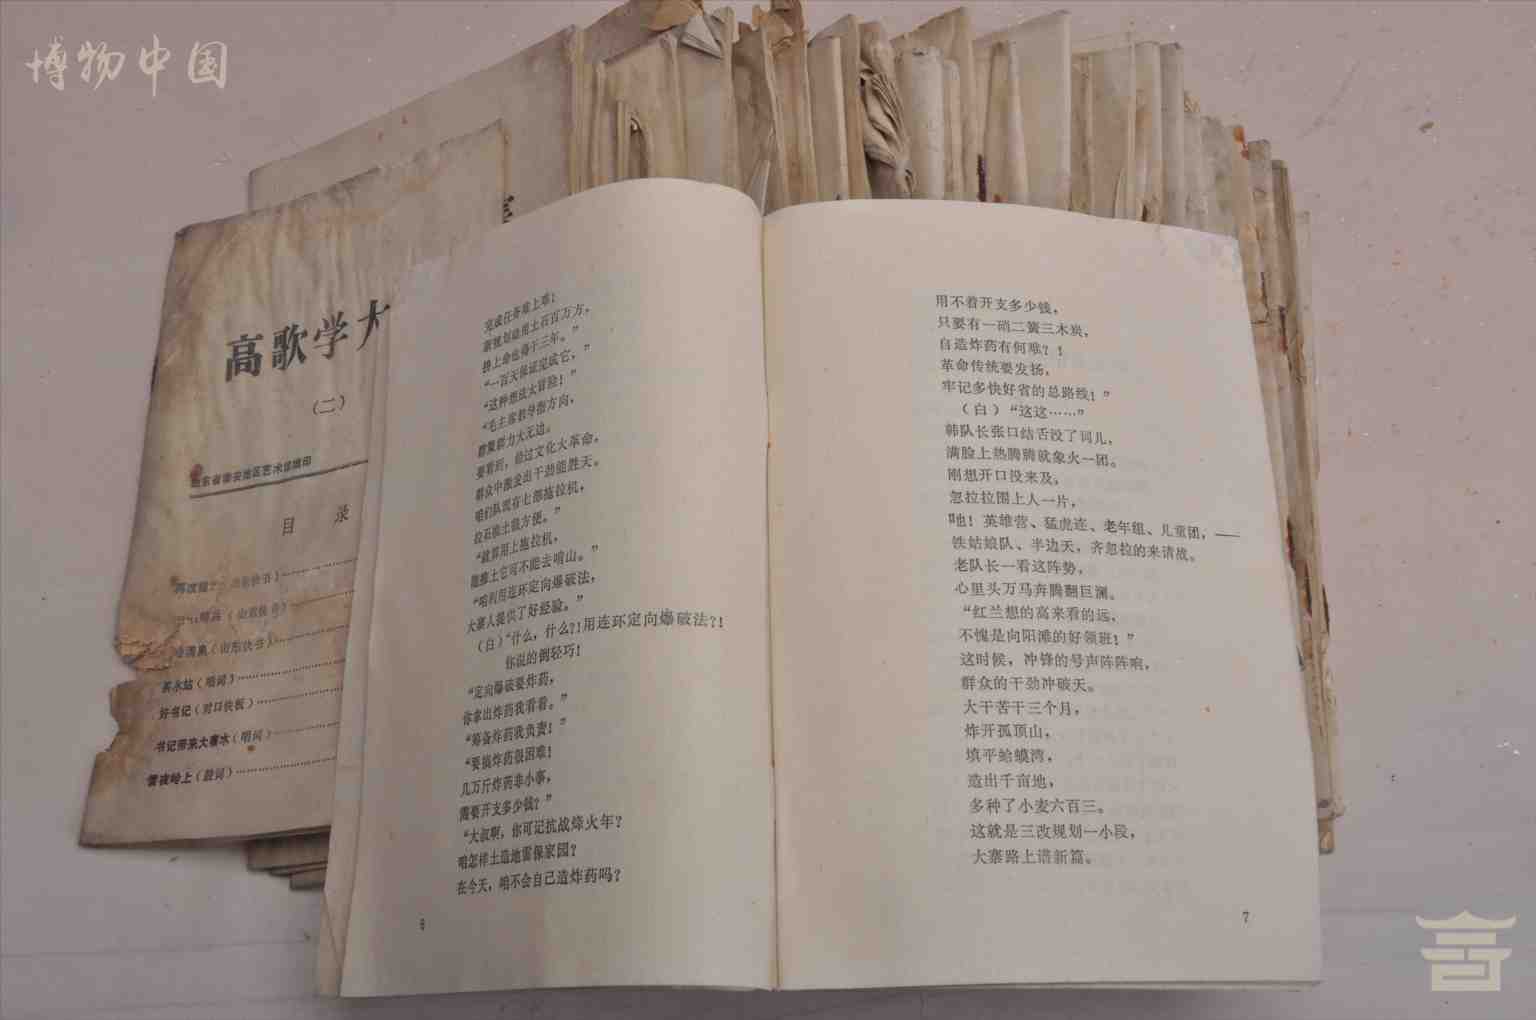 博物中国
高歌学大
（二）
山东省泰安地区艺术馆编印
目 录
再改规划（山东快书）
（山东快书）
（山东快书）
茶水站（唱词）
好书记（对口快板）
书记带来大寨水（唱词）
雪夜岭上（鼓词）
完成任务难上难！
新规划动用土石百万方，
拚上命也得干三年。”
“一百天保证完成它，”
“这种想法太冒险！”
“毛主席教导指方向，
群众力大无边。
要看到，经过文化大革命，
群众中激发出干劲能胜天。
咱们队现有七部拖拉机，
拉石推土很方便。”
“就算用上拖拉机，
能推土它可不能去啃山。”
“咱利用连环定向爆破法，
大寨人提供了好经验。”
（白）“什么，什么?!用连环定向爆破法?!
你说的倒轻巧！
“定向爆破要炸药，
你拿出炸药我看看。”
“筹备炸药我负责！”
“要搞炸药很困难！
几万斤炸药非小事，
需要开支多少钱？”
“大叔啊，你可记抗战烽火年？
咱怎样土造地雷保家园？
在今天，咱不会自己造炸药吗？
6
用不着开支多少钱，
只要有一硝二簧三木炭，
自造炸药有何难？！
革命传统要发扬，
牢记多快好省的总路线！”
（白）“这这……”
韩队长张口结舌没了词儿，
满脸上热腾腾就象火一团。
刚想开口没来及，
忽拉拉围上人一片，
嘿！英雄营、猛虎连、老年组、儿童团，——
铁姑娘队、半边天，齐忽拉的来请战。
老队长一看这阵势，
心里头万马奔腾翻巨澜。
“红兰想的高来看的远，
不愧是向阳滩的好领班！”
这时候，冲锋的号声阵阵响，
群众的干劲冲破天。
大干苦干三个月，
炸开孤顶山，
填平蛤蟆湾，
造出千亩地，
多种了小麦六百三。
这就是三改规划一小段，
大寨路上谱新篇。
7